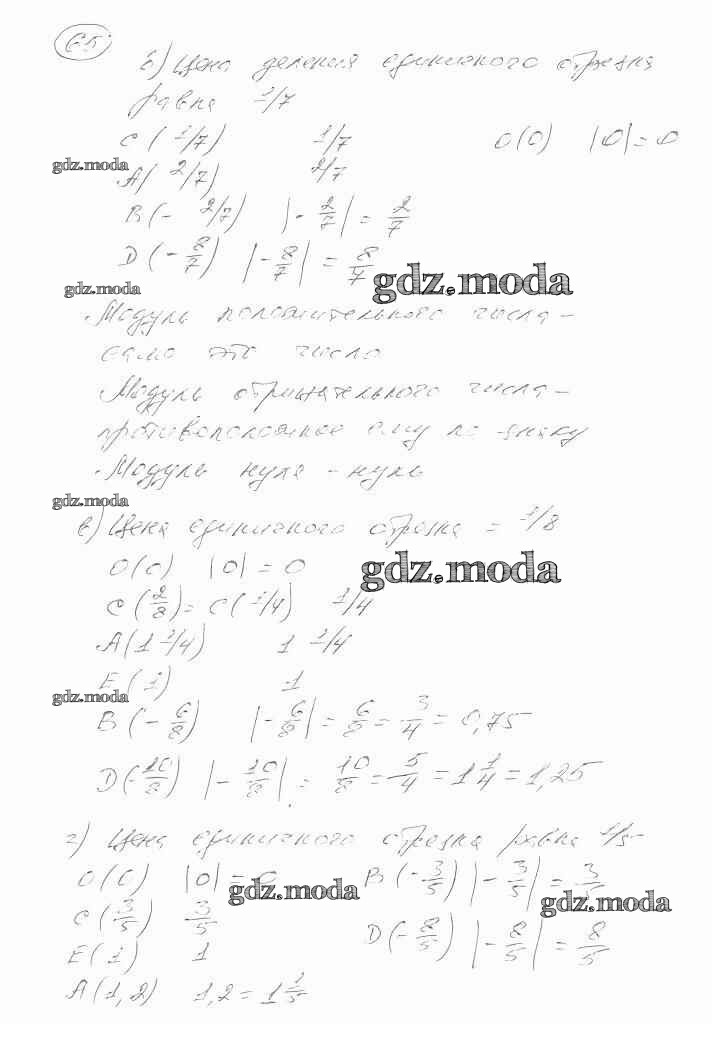 65
б) Цена деления единичного отрезка
равна 1/7
C ( 1/7) 1/7 O(0) |0| = 0
gdz.moda
A( 2/7) 2/7
B(- 2/7) |- 2/7| = 2/7
D (- 8/7) |- 8/7| = 8/7
gdz.moda gdz.moda
Модуль положительного числа -
само это число
Модуль отрицательного числа -
противоположное ему по знаку
Модуль нуля - нуль
gdz.moda
в) Цена единичного отрезка = 1/8
O(0) |0| = 0 gdz.moda
C (2/8) = C (1/4) 1/4
A(1 1/4) 1 1/4
E (1) 1
gdz.moda
B (- 6/8) |- 6/8| = 6/8 = 3/4 = 0,75
D(- 10/8) |- 10/8| = 10/8 = 5/4 = 1 1/4 = 1,25
г) Цена единичного отрезка равна 1/5
O(0) |0| = 0 B (- 3/5) |- 3/5| = 3/5
gdz.moda gdz.moda
C (3/5) 3/5 D(- 8/5) |- 8/5| = 8/5
E (1) 1
A (1,2) 1,2 = 1 1/5